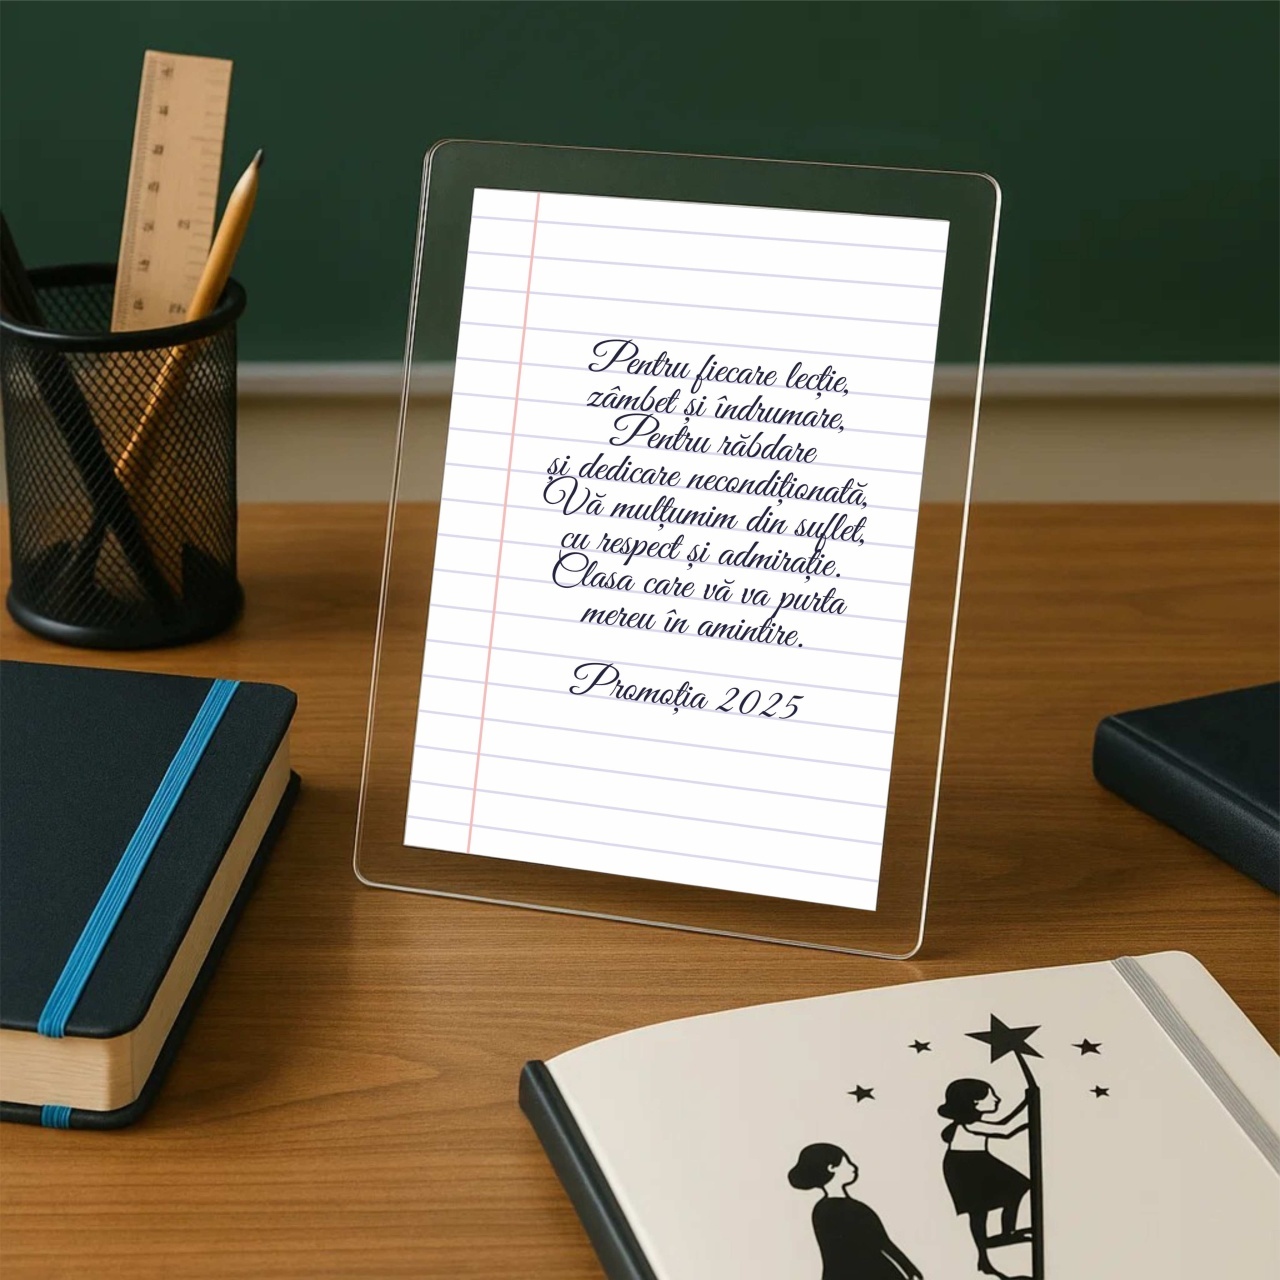 Pentru fiecare lecție,
zâmbet și îndrumare,
Pentru răbdare
și dedicare necondiționată,
Vă mulțumim din suflet,
cu respect și admirație.
Clasa care vă va purta
mereu în amintire.
Promoția 2025